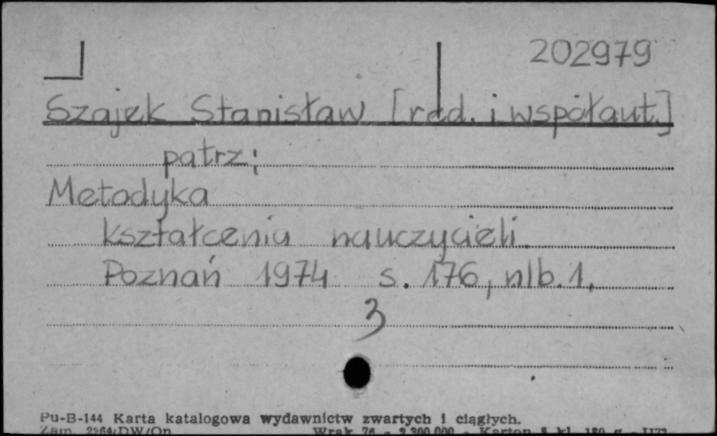 202979
Szajek Stanisław [red. i współaut.]
patrz:
Metodyka
kształcenia nauczycieli.
Poznań 1974 s. 176, nlb. 1.
3
Pu-B-144 Karta katalogowa wydawnictw zwartych i ciągłych.
Zam. DW/On Wrak 76 - 2.200.000 - Karton kl. 180 g -